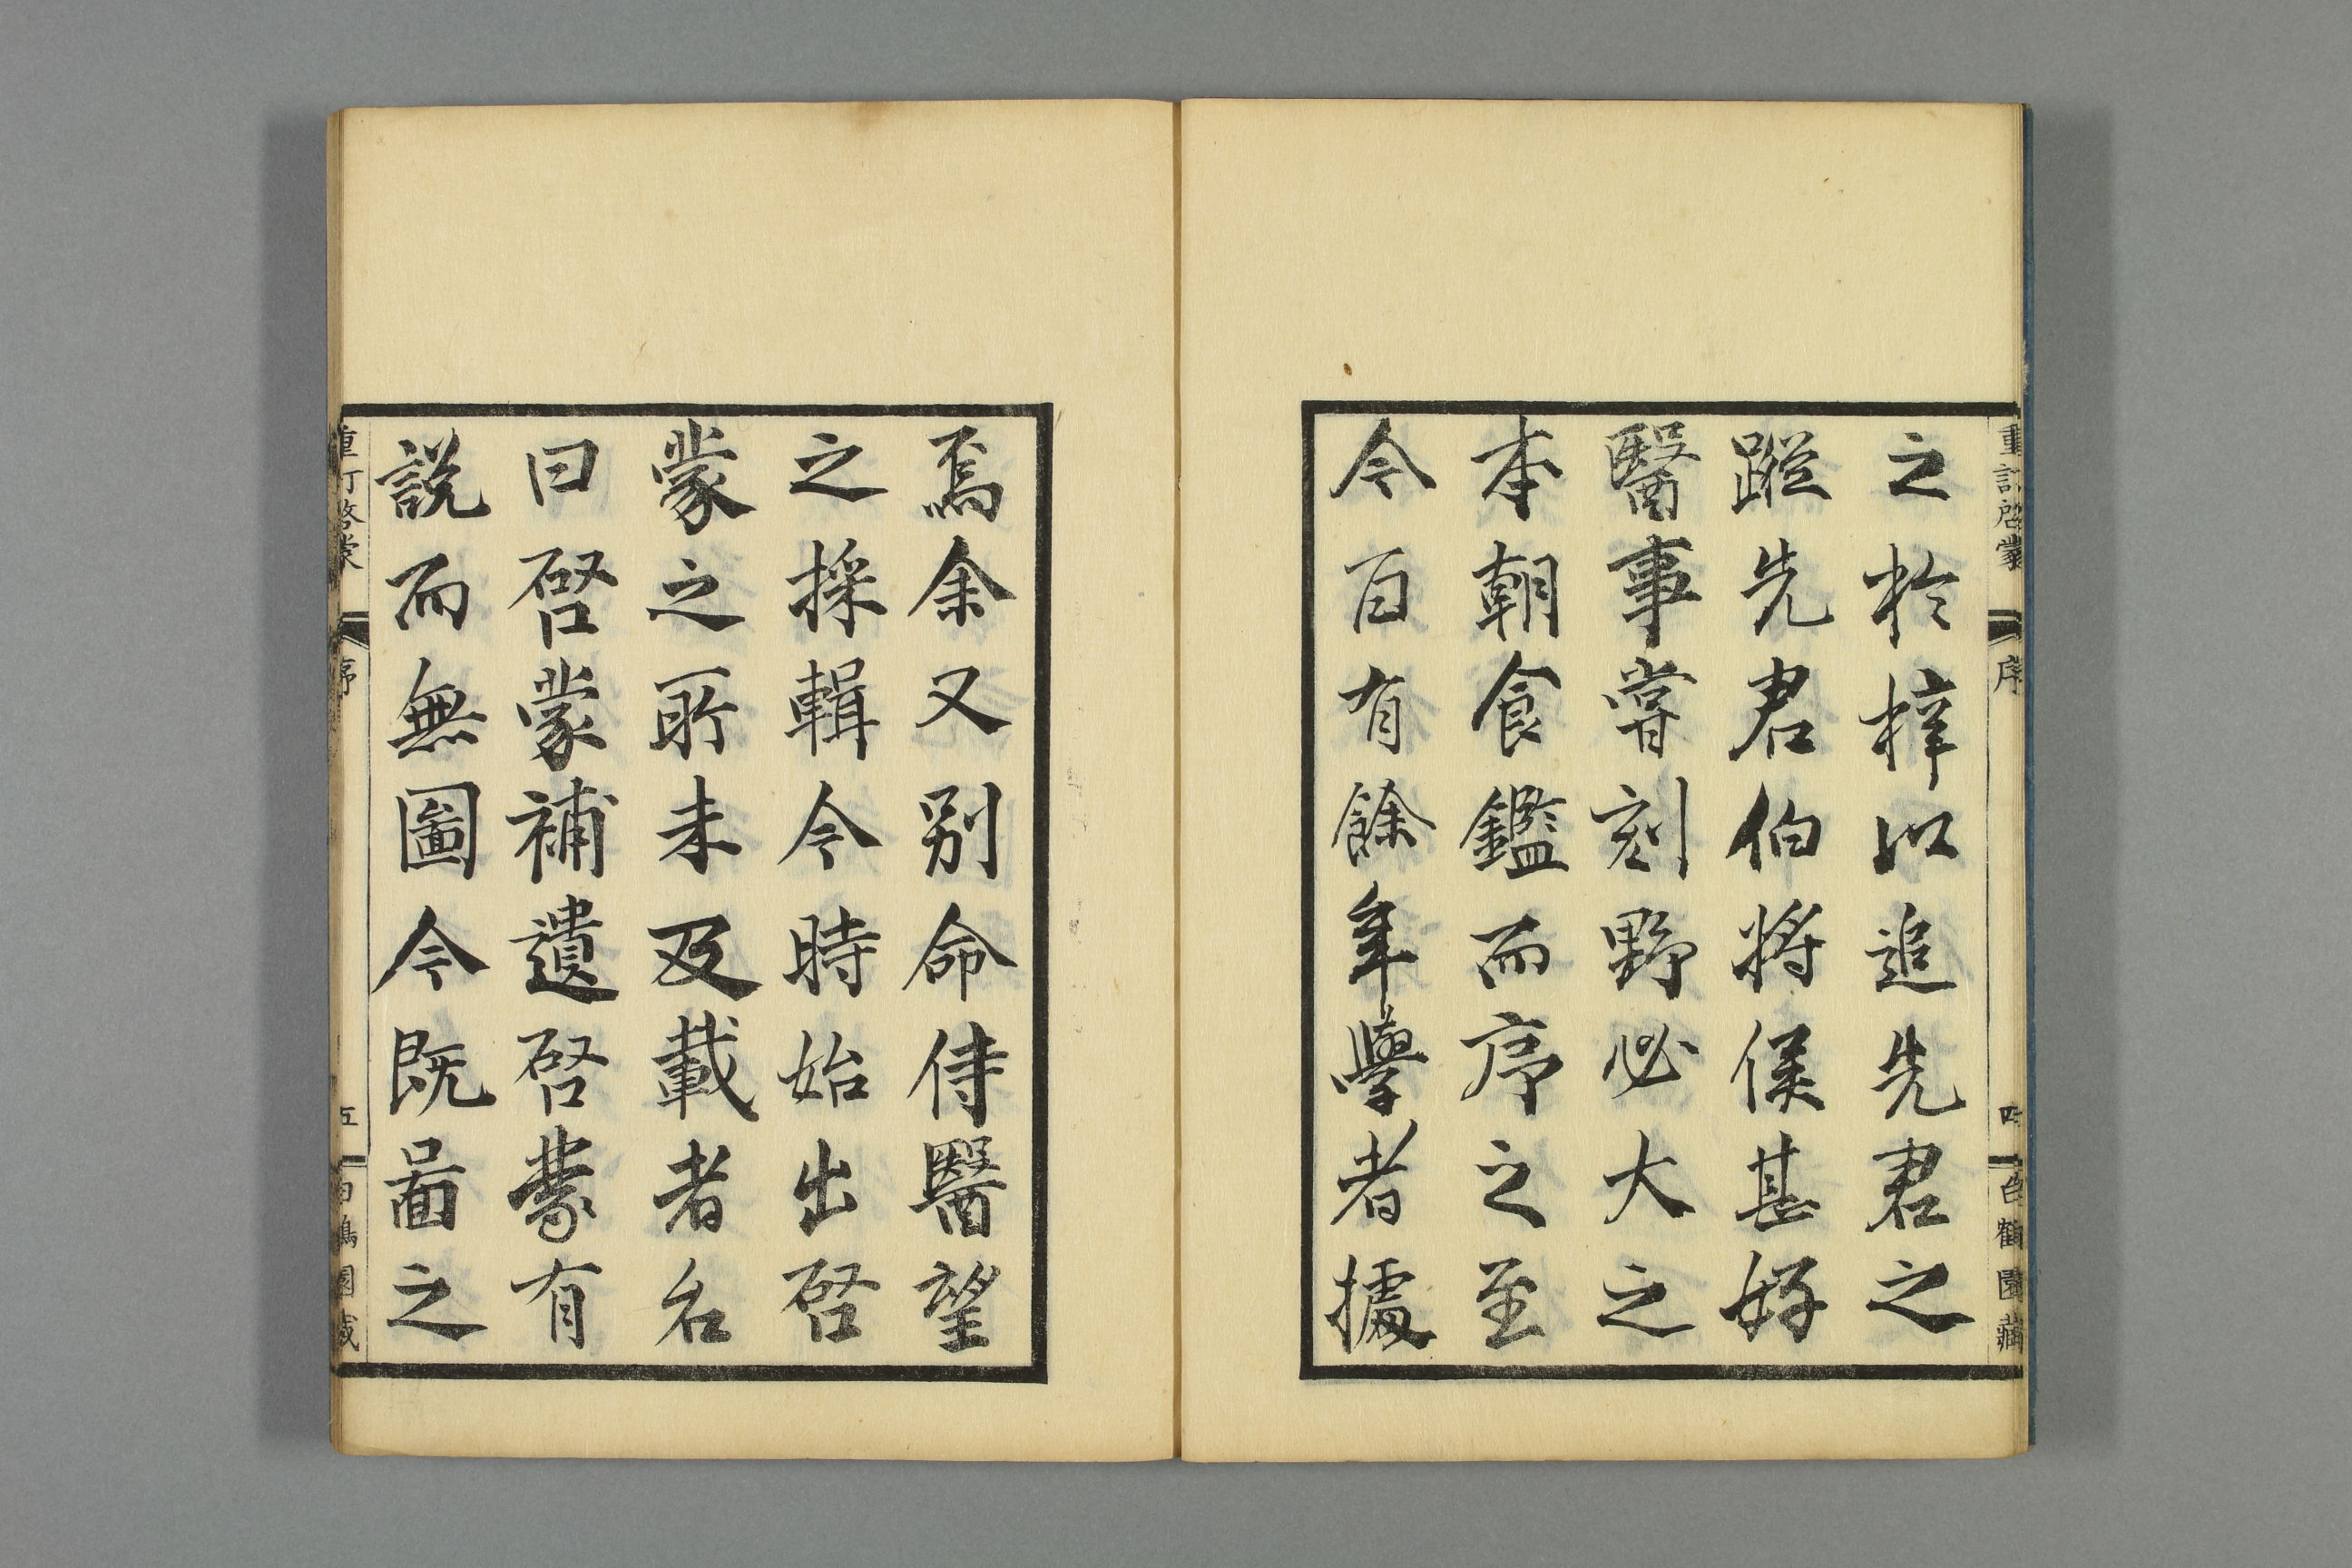 重訂啓蒙 序 四 白鶴園藏
之於梓以追先君之
蹤先君伯將侯甚好
醫事嘗刻野必大之
本朝食鑑而序之至
今百有餘年學者據
焉余又別命侍醫望
之採輯今時始出啓
蒙之所未及載者名
曰啓蒙補遺啓蒙有
說而無圖今既啚之
重訂啓蒙 序 五 白鶴園藏